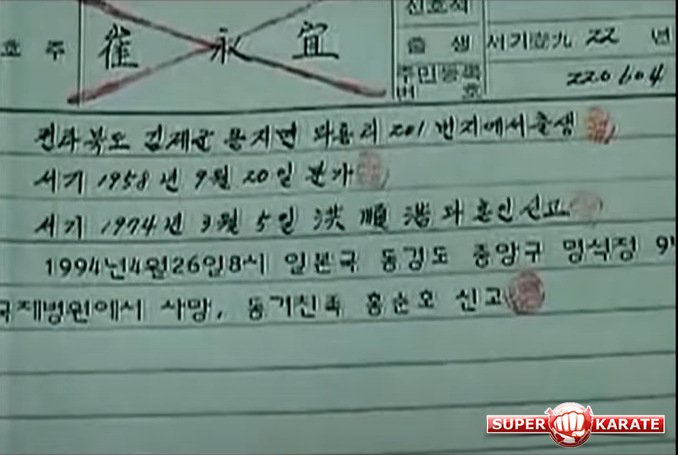 호주 崔永宜 출생 서기壹九22년
주민등록
번호 220604
전라북도 김제군 용지면 와룡리 201번지에서출생
서기 1958년 9월 20일 분가
서기 1974년 3월 5일 洪順浩과 혼인신고
1994년4월26일8시 일본국 동경도 중앙구 명석정 9
국제병원에서 사망, 동거친족 홍순호 신고
SUPER KARATE